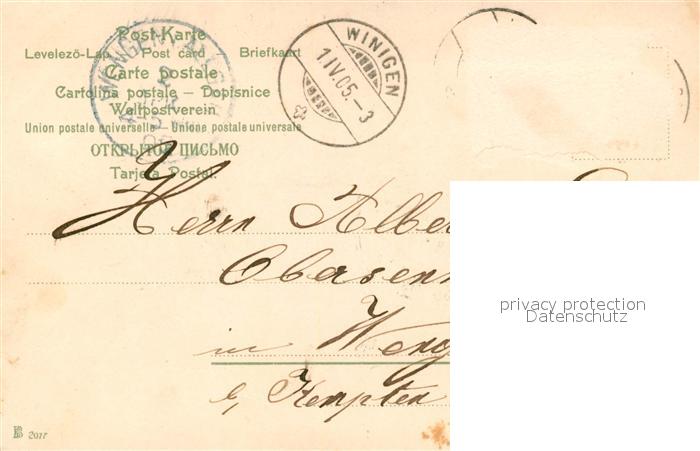 Post-Karte
Levelező-Lap Post card Briefkaart
Carte postale
Cartolina postale – Dopisnice
Weltpostverein
Union postale universelle Unione postale universale
ОТКРЫТОЕ ПИСЬМО
Tarjeta Postal.
WINIGEN
1.IV.05.–3
Herrn Alber
Obersenn
in Weng
b/ Kempten
privacy protection
Datenschutz
2077